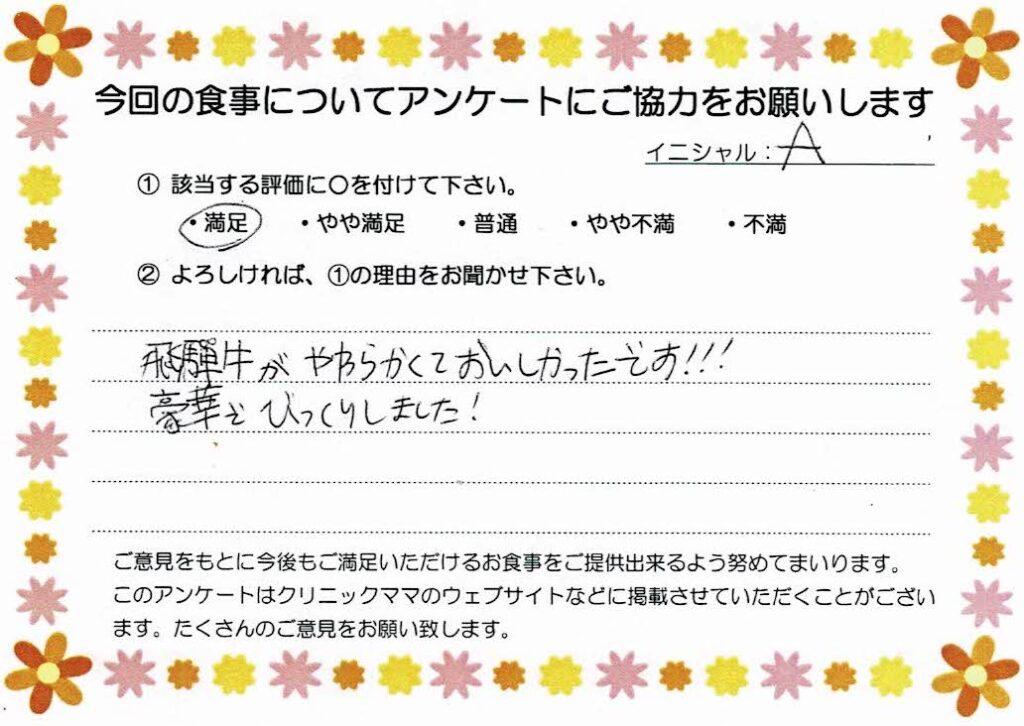 今回の食事についてアンケートにご協力をお願いします
イニシャル:A
① 該当する評価に〇を付けて下さい。
・満足 ・やや満足 ・普通 ・やや不満 ・不満
② よろしければ、①の理由をお聞かせ下さい。
飛騨牛が やわらかくておいしかったです!!!
豪華で びっくりしました!
ご意見をもとに今後もご満足いただけるお食事をご提供出来るよう努めてまいります。
このアンケートはクリニックママのウェブサイトなどに掲載させていただくことがござい
ます。たくさんのご意見をお願い致します。